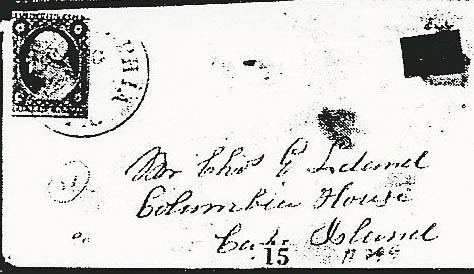 PHIA
Mr Chas E Leland
Columbia House
Island
15